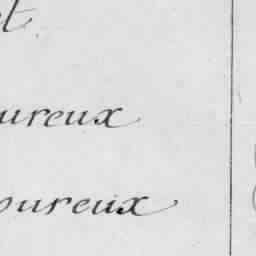 et
ureux
oureux